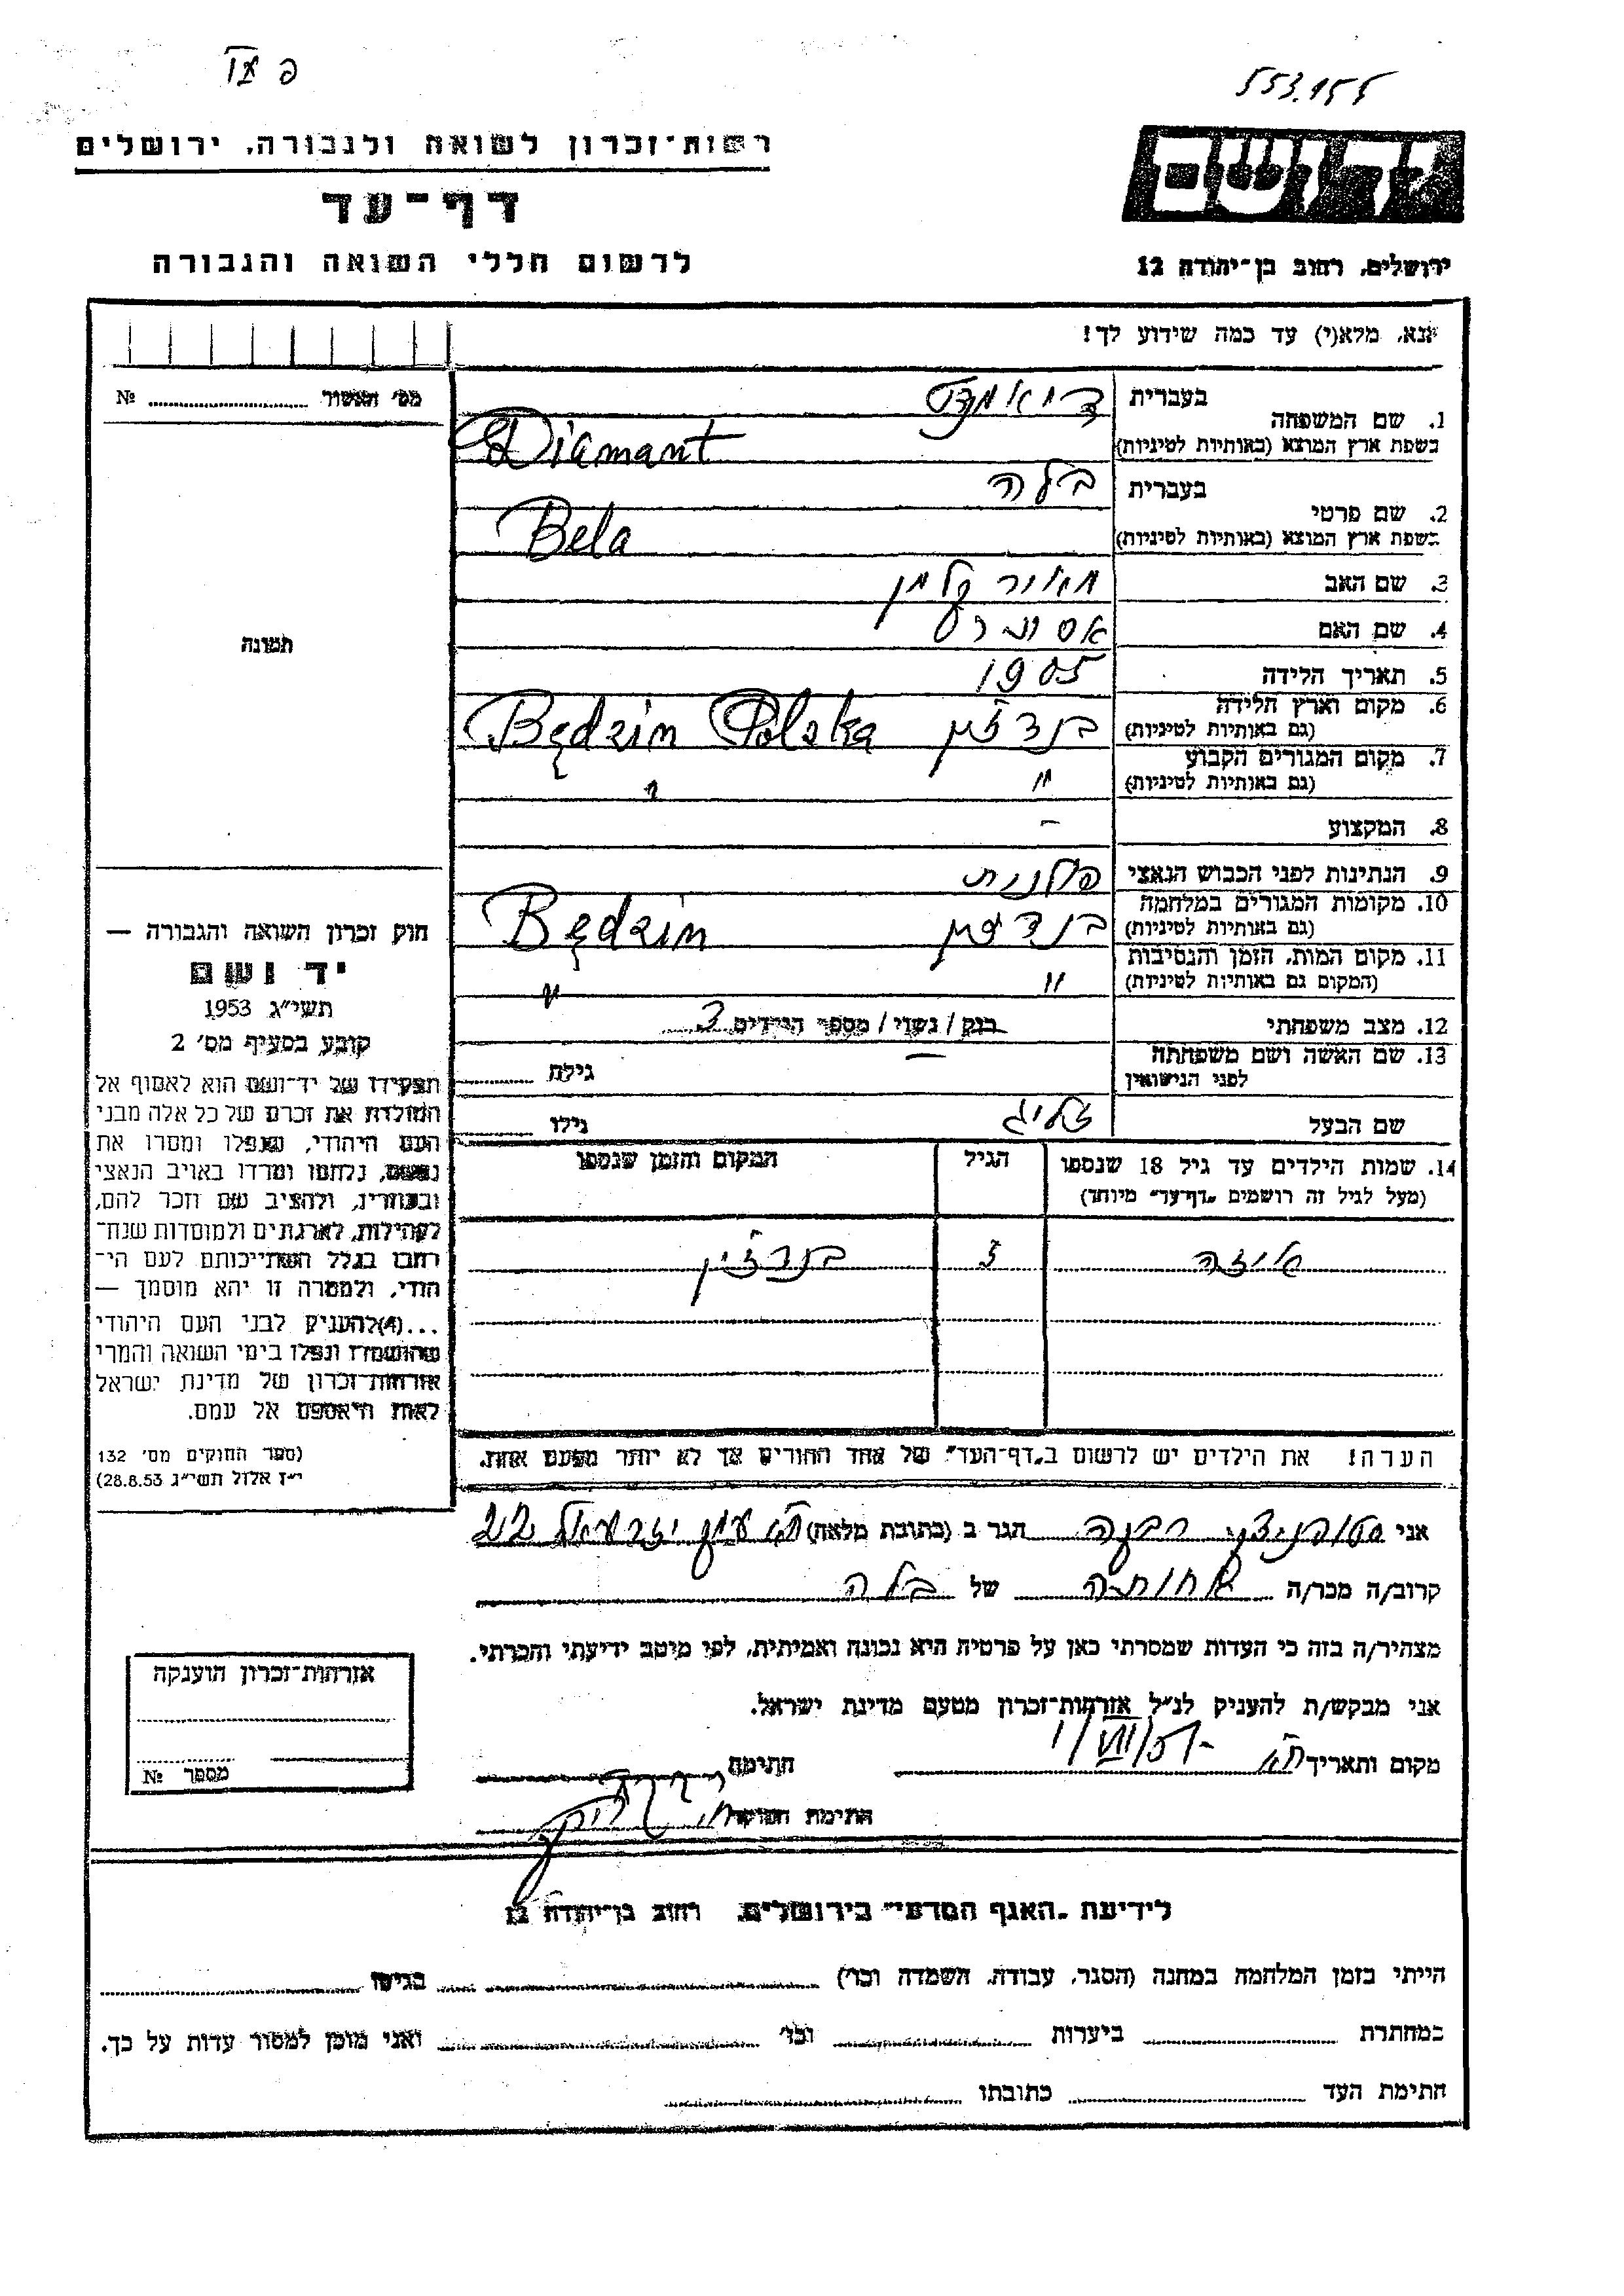 פ
553.155
רשות־זכרון לשואה ולגבורה, ירושלים
דף־עד
לרשום חללי השואה והגבורה
יד ושם
ירושלים, רחוב בן־יהודה 12
נא, מלא(י) עד כמה שידוע לך!
מס׳ האשור № 
תמונה
1. שם המשפחה
בעברית דיאמנט
בשפת ארץ המוצא (באותיות לטיניות) Diamant
2. שם פרטי
בעברית בלה
בשפת ארץ המוצא (באותיות לטיניות) Bela
3. שם האב מאיר קלמן
4. שם האם
5. תאריך הלידה 1905
6. מקום וארץ הלידה (גם באותיות לטיניות) בנדזין Będzin Polska
7. מקום המגורים הקבוע (גם באותיות לטיניות) " "
8. המקצוע –
9. הנתינות לפני הכבוש הנאצי פולנית
10. מקומות המגורים במלחמה (גם באותיות לטיניות) בנדזין Będzin
11. מקום המות, הזמן והנסיבות (המקום גם באותיות לטיניות) " "
12. מצב משפחתי רווק / נשוי / מספר הילדים 3
13. שם האשה ושם משפחתה לפני הנישואין — גילה
שם הבעל זליג גילו
14. שמות הילדים עד גיל 18 שנספו
(מעל לגיל זה רושמים "דף־עד" מיוחד)
הגיל
המקום והזמן שנספו
בנדזין
הערה! את הילדים יש לרשום ב"דף־העד" של אחד ההורים אך לא יותר מפעם אחת.
חוק זכרון השואה והגבורה —
יד ושם
תשי״ג 1953
קובע בסעיף מס׳ 2
תפקידו של יד־ושם הוא לאסוף אל
המולדת את זכרם של כל אלה מבני
העם היהודי, שנפלו ומסרו את
נפשם, נלחמו ומרדו באויב הנאצי
ובעוזריו, ולהציב שם וזכר להם,
לקהילות, לארגונים ולמוסדות שנח־
רבו בגלל השתייכותם לעם הי־
הודי, ולמטרה זו יהא מוסמך —
...(4) להעניק לבני העם היהודי
שהושמדו ונפלו בימי השואה והמרי
אזרחות־זכרון של מדינת ישראל
לאות היאספם אל עמם.
(ספר החוקים מס׳ 132
י״ז אלול תשי״ג 28.8.53)
אני רבקה הגר ב (כתובת מלאה) יזרעאל 22
קרוב/ה מכר/ה אחותה של בלה
מצהיר/ה בזה כי העדות שמסרתי כאן על פרטיה היא נכונה ואמיתית, לפי מיטב ידיעתי והכרתי.
אני מבקש/ת להעניק לנ״ל אזרחות־זכרון מטעם מדינת ישראל.
מקום ותאריך ת״א 1/VII/57 חתימה
חתימת הפוקד
אזרחות־זכרון הוענקה
מספר №
לידיעת "האגף המדעי" בירושלים, רחוב בן־יהודה 12
הייתי בזמן המלחמה במחנה (הסגר, עבודה, השמדה וכו׳) בגיטו
במחתרת ביערות וכו׳ ואני מוכן למסור עדות על כך.
חתימת העד כתובתו